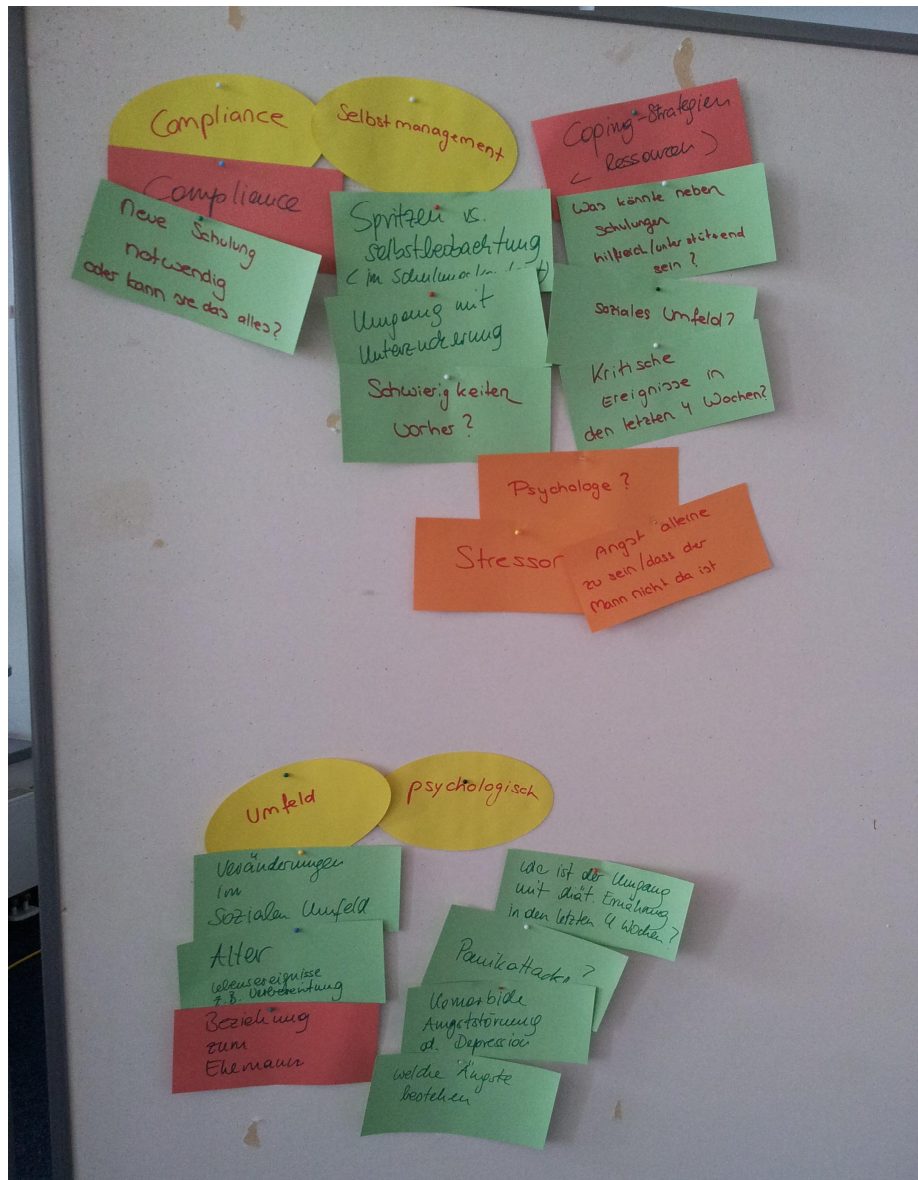 Compliance
Selbstmanagement
Coping-Strategien
( Ressourcen )
Compliance
Neue Schulung
notwendig
oder kann sie das alles?
Spritzen vs.
selbstbeobachtung
( im
Umgang mit
Unterzuckerung
Schwierigkeiten
vorher ?
Was könnte neben
Schulungen
hilfreich/unterstützend
sein ?
soziales Umfeld?
Kritische
Ereignisse in
den letzten 4 Wochen?
Psychologe ?
Stressor
Angst alleine
zu sein/dass der
Mann nicht da ist
Umfeld
psychologisch
Veränderungen
im
Sozialen Umfeld
Alter
Lebensereignisse
z.B.
Beziehung
zum
Ehemann
wie ist der Umgang
mit diät. Ernährung
in den letzten 4 Wochen ?
Panikattacken ?
Komorbide
Angststörung
od. Depression
welche Ängste
bestehen